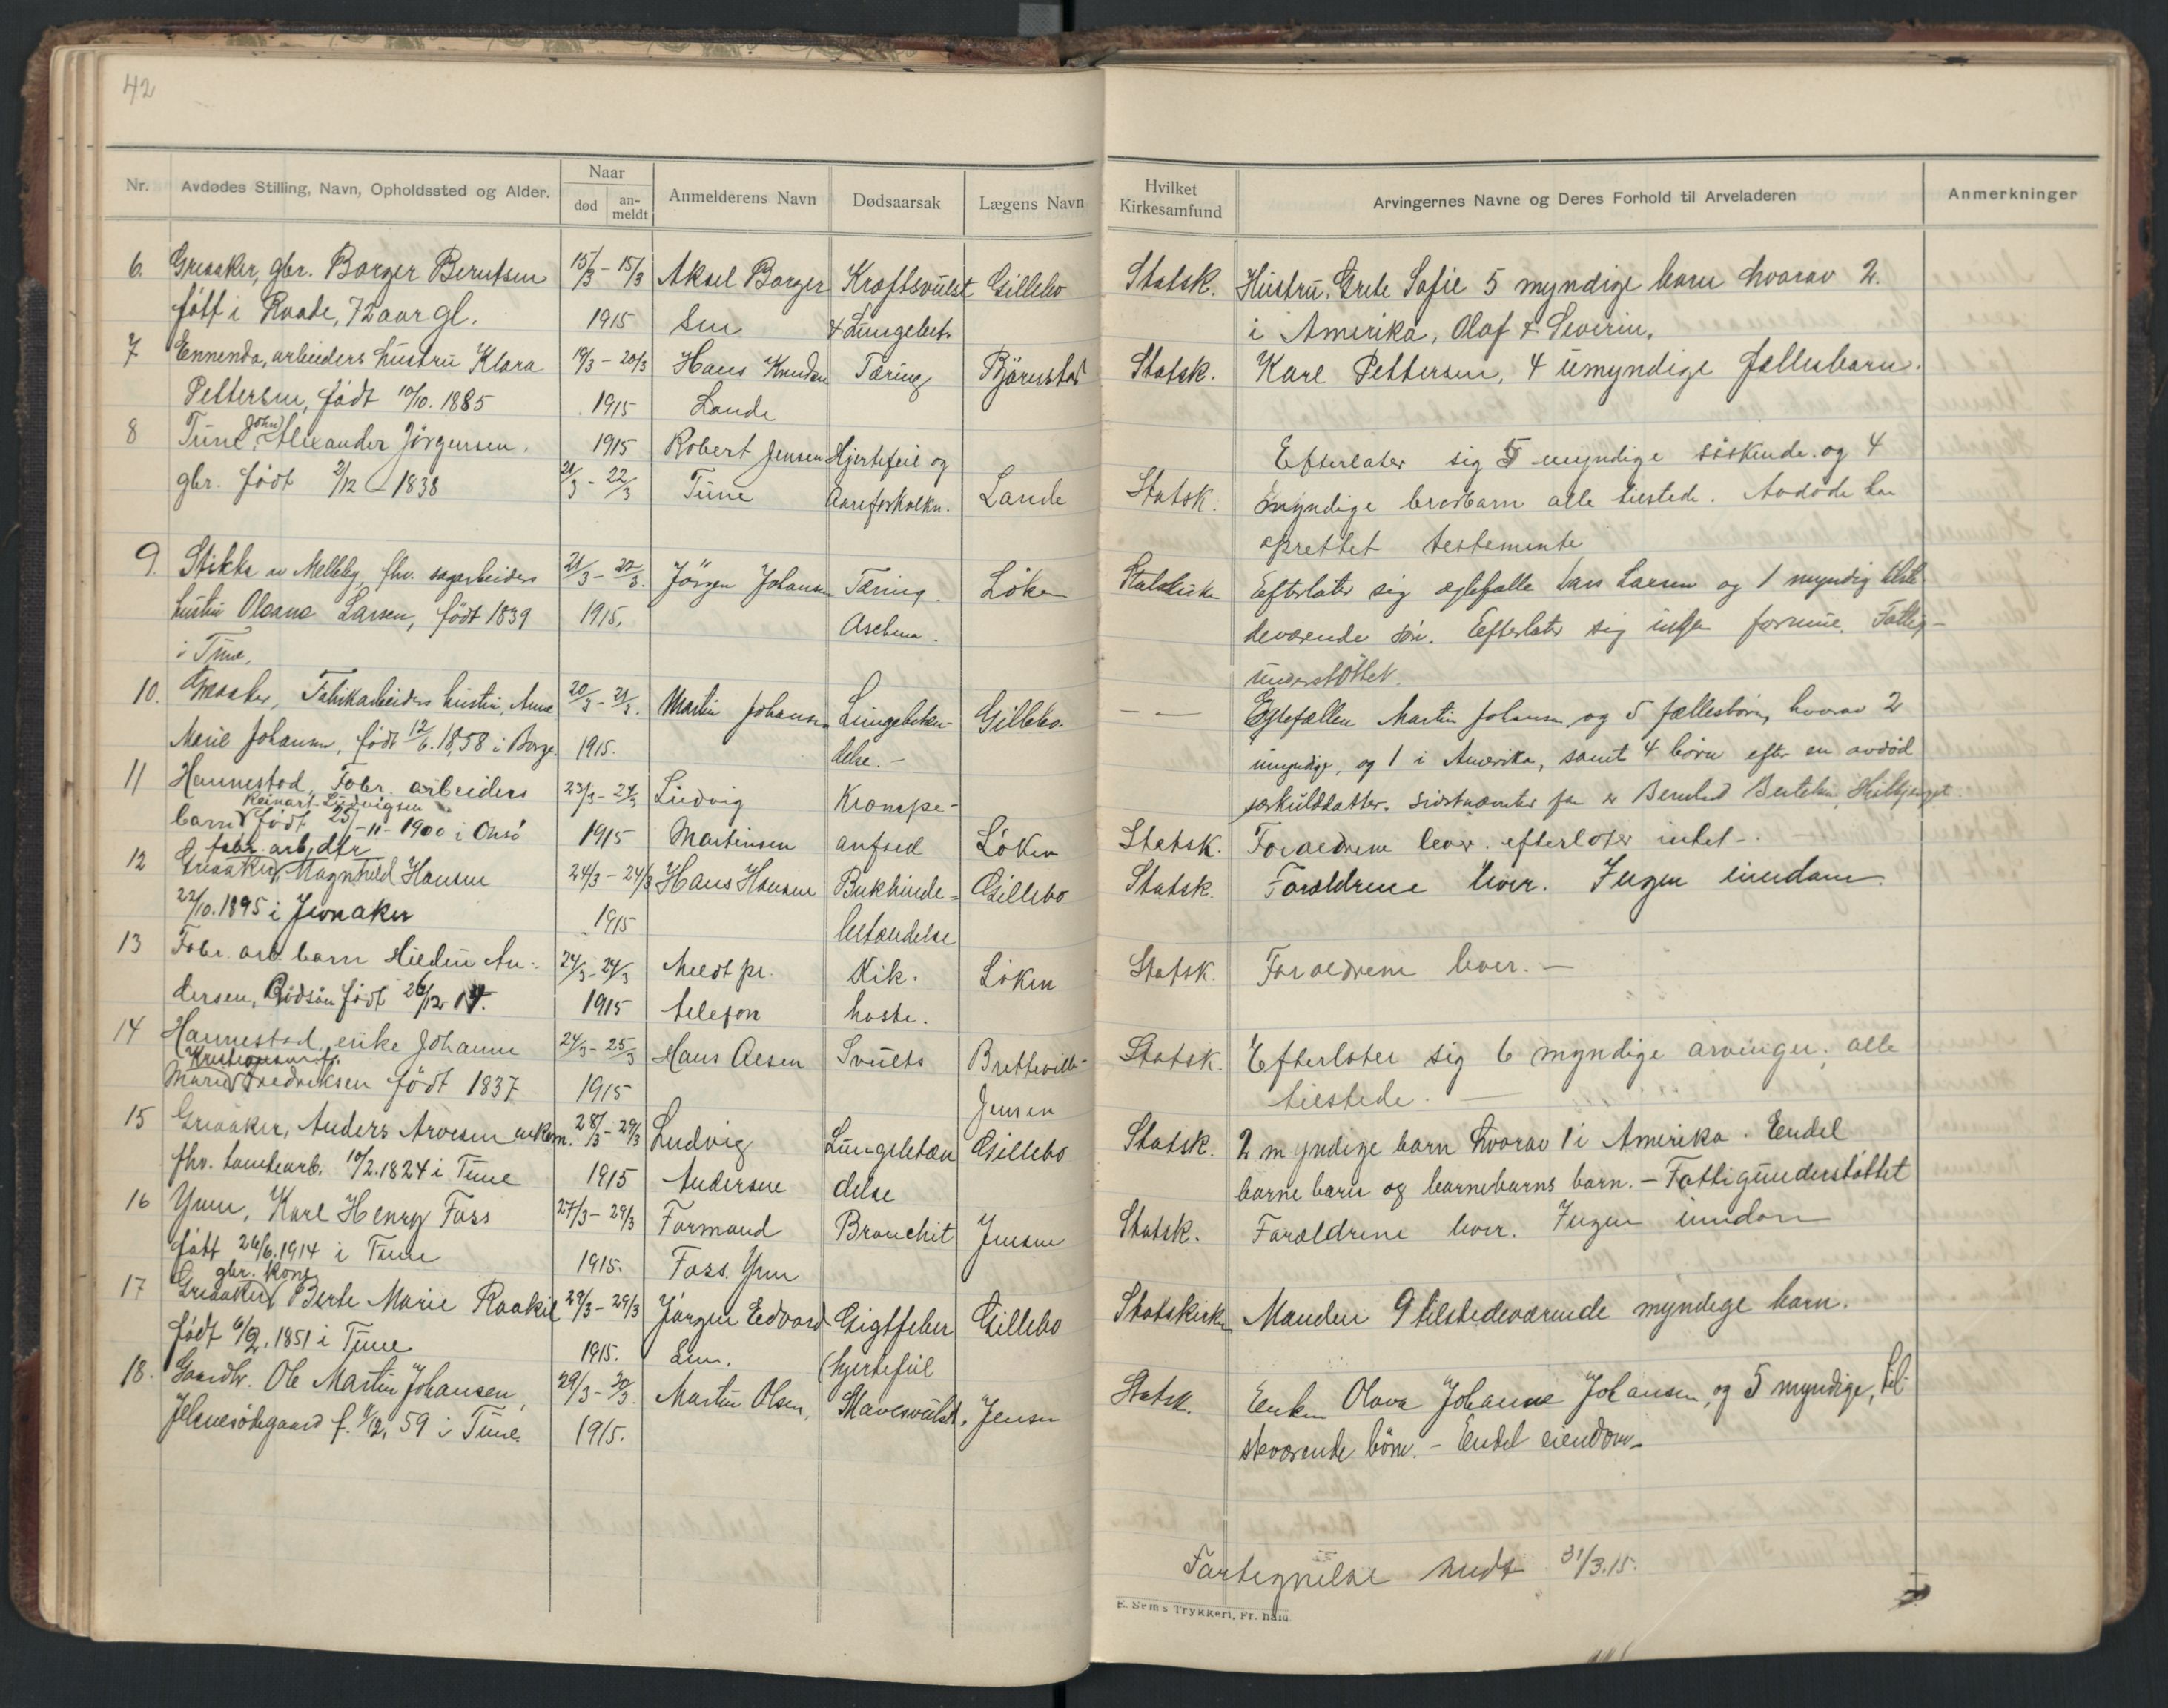 42
Nr.
Avdødes Stilling, Navn, Opholdssted og Alder.
Naar
død
an-
meldt
Anmelderens Navn
Dødsaarsak
Lægens Navn
Hvilket
Kirkesamfund
Arvingernes Navne og Deres Forhold til Arveladeren
Anmerkninger
6. Greaaker, gbr. Borger Berntsen 15/3 - 15/3 Aksel Borger Kræftsvulst Gillebo Statsk. Hustru, Grete Sofie 5 myndige barn hvorav 2
føtt i Raade, 72 aar gl. 1915 sen & Lungebet. i Amerika, Olaf & Severin.
7 Ennenda, arbeiders hustru Klara 19/3 - 20/3 Hans Knudsen Tæring Bjørnstad Statsk. Karl Pettersen, 4 umyndige fællesbarn.
Pettersen, født 10/10. 1885 1915 Lande
8 Tune, John Alexander Jørgensen, 1915 Robert Jensen Hjertefeil og Efterlater sig 5 myndige søskende og 4
gbr. født 2/12 - 1838 21/3 - 22/3 Tune Aareforkalkn. Lande Statsk. myndige brorbarn alle tilstede. Avdøde har
oprettet testamente
9. Stikka av Melleby, fhv. sagarbeiders 21/3 - 22/3. Jørgen Johansen Tæring. Løken Statskirken Efterlater sig egtefælle Lars Larsen og 1 myndig tilste
hustru Oleane Larsen, født 1839 1915. Asthma. deværende søn. Efterlater sig ingen formue. Fattig-
i Tune. understøttet.
10. Greaaker, Fabrikarbeiders hustru, Anna 20/3 - 21/3. Martin Johansen Lungebeten- Gillebo. — — Egtefællen Martin Johansen og 5 fællesbørn, hvorav 2
Marie Johansen, født 12/6. 1858 i Borge. 1915. delse. - umyndige, og 1 i Amerika, samt 4 børn efter en avdød
særkuldsdatter. Sidstnævntes far er Bernhard
11 Hannestad, Fabr. arbeiders 23/3 - 24/3 Ludvig Krampe-
Reinart Ludvigsen
barn født 25/-11- 1900 i Onsø 1915 Martinsen anfald Løken Statsk. Foraldrene lever. efterlater intet -.
fabr. arb. dtr
12 Greaaker, Magnhild Hansen 24/3 - 24/3 Hans Hansen Bukhinde- Gillebo Statsk. Forældrene lever. Ingen eiendom.
22/10. 1895 i Jevnaker 1915 betændelse
13 Fabr. arb. barn An- 24/3 - 24/3 Meldt pr. Kik- Løken Statsk. Foraldrene lever. —
dersen, Rødsøn født 26/12 14. 1915 telefon hoste.
14 Hannestad enke Johanne 24/3 - 25/3 Hans Olsen Svulst Bretteville- Statsk. Efterlater sig 6 myndige arvinger, alle
Kristiansen f.
Marie Fredriksen født 1837 1915 Jensen tilstede. —
15 Greaaker, Anders Arvesen enkem. 28/3 - 29/3 Ludvig Lungebetæn Gillebo Statsk. 2 myndige barn hvorav 1 i Amerika. Endel
fhv. tomtearb. 10/2. 1824 i Tune 1915 Andersen delse barne barn og barnebarns barn. - Fattigunderstøttet
16 Yven, Karl Henry Foss 27/3 - 29/3 Formand Bronchit Jensen Statsk. Forældrene lever. Ingen eiendom
født 26/6. 1914 i Tune 1915. Foss. Yven
gbr. kone
17 Greaaker, Berte Marie Raakil 29/3 - 29/3 Jørgen Edvard Gigtfeber Gillebo Statskirken Manden 9 tilstedeværende myndige barn.
født 6/2. 1851 i Tune 1915. sen. (hjertefeil
18. Gaardbr. Ole Martin Johansen, 29/3 - 30/3. Martin Olsen, Mavesvulst. Jensen Statsk. Enken Olava Johanne Johansen, og 5 myndige, til-
f. 1/12. 59 i Tune. 1915. stеværende børn. - Endel eiendom -
Fortegnelse sendt 31/3. 15.
E. Sem's Trykkeri, Fr. hald.